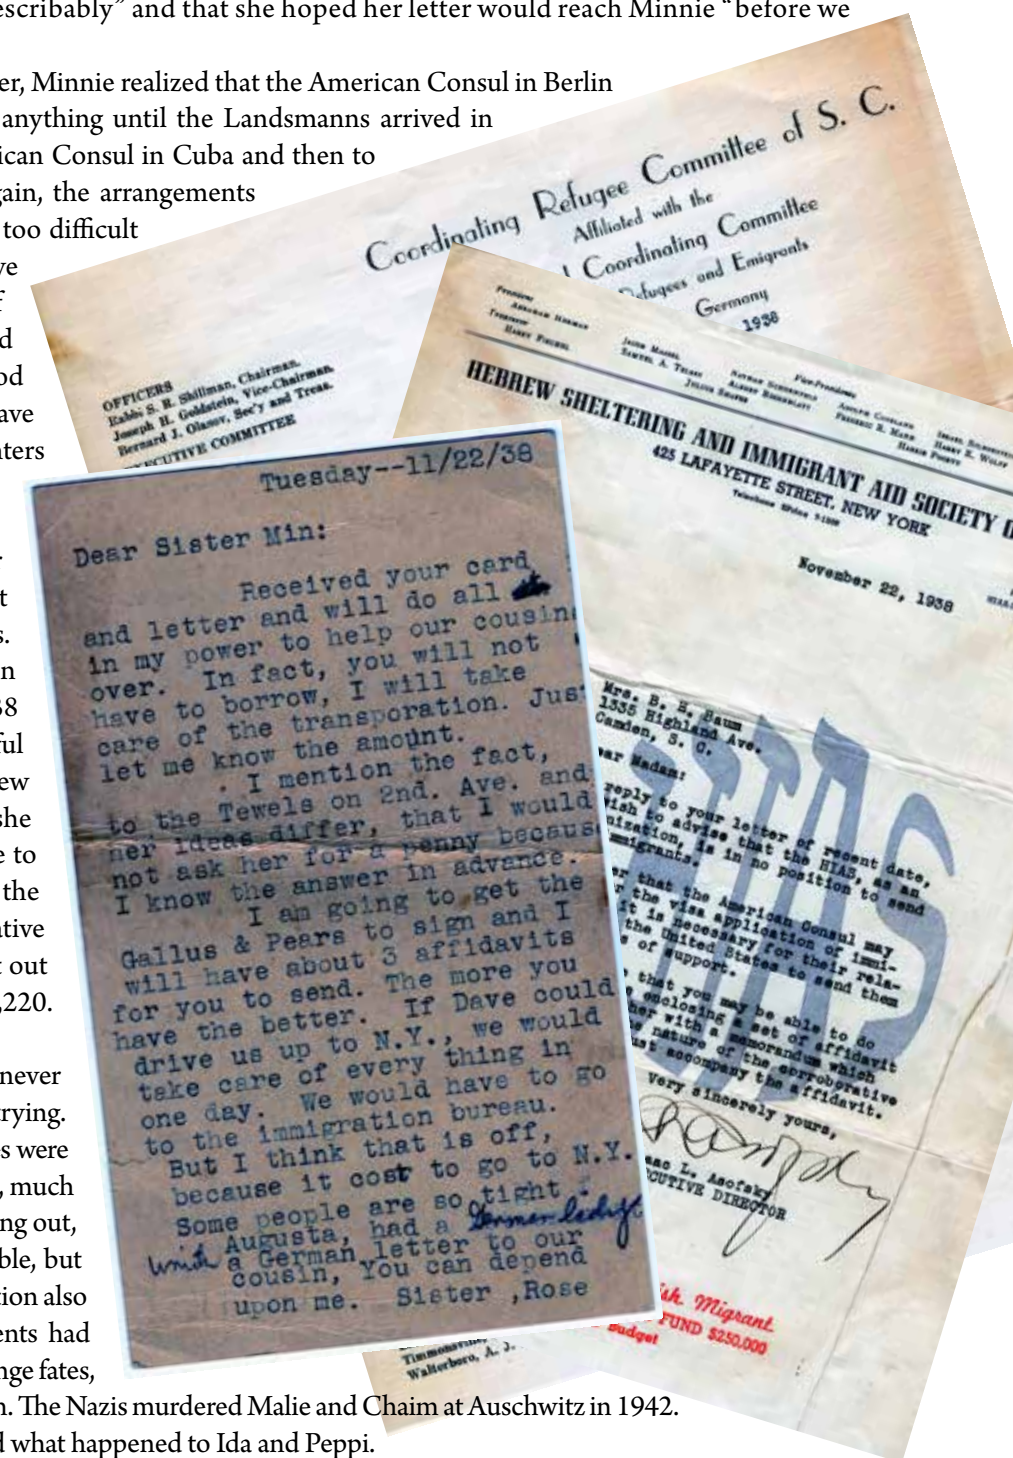 escribably” and that she hoped her letter would reach Minnie “before we
er, Minnie realized that the American Consul in Berlin
anything until the Landsmanns arrived in
ican Consul in Cuba and then to
gain, the arrangements
too difficult
ve
f
d
od
ave
nters
t
s.
n
38
ful
ew
she
e to
the
ative
t out
,220.
never
trying.
es were
, much
ng out,
ble, but
tion also
ents had
nge fates,
n. The Nazis murdered Malie and Chaim at Auschwitz in 1942.
d what happened to Ida and Peppi.
Coordinating Refugee Committee of S. C.
Affiliated with the
l Coordinating Committee
efugees and Emigrants
Germany
1938
OFFICERS
Rabbi S. R. Shillman, Chairman.
Joseph H. Goldstein, Vice-Chairman.
Bernard J. Olasov, Sec'y and Treas.
EXECUTIVE COMMITTEE
Timmonsville,
Walterboro, A. J.
President
Abraham Herman
Treasurer
Harry Fischel
Vice-Presidents
Jacob Massel
Samuel A. Telsey
Albert Rosenblatt
Julius
Adolph Copeland
Frederic R. Mann
Harris Poorvu
Israel
Harry E. Wolff
HEBREW SHELTERING AND IMMIGRANT AID SOCIETY O
425 LAFAYETTE STREET, NEW YORK
Telephone
November 22, 1938
Mrs. B. H. Baum
1335 Highland Ave.
Camden, S. C.
ear Madam:
reply to your letter of recent date,
ish to advise that the HIAS, as an
nization, is in no position to send
mmigrants.
er that the American Consul may
r the visa application of immi-
it is necessary for their rela-
the United States to send them
s of support.
that you may be able to do
enclosing a set of affidavit
her with a memorandum which
he nature of the corroborative
ust accompany the affidavit.
Very sincerely yours,
aac L. Asofsky
ECUTIVE DIRECTOR
HIAS
ish Migrant
FUND $250,000
Budget
Tuesday--11/22/38
Dear Sister Min:
Received your card
and letter and will do all
in my power to help our cousins
over. In fact, you will not
have to borrow, I will take
care of the transporation. Just
let me know the amount.
. I mention the fact,
to the Tewels on 2nd. Ave. and
her ideas differ, that I would
not ask her for a penny becaus
I know the answer in advance.
I am going to get the
Gallus & Pears to sign and I
will have about 3 affidavits
for you to send. The more you
have the better. If Dave could
drive us up to N.Y., we would
take care of every thing in
one day. We would have to go
to the immigration bureau.
But I think that is off,
because it cost to go to N.Y.
Some people are so tight.
Augusta, had a German lady
write a German letter to our
cousin, You can depend
upon me. Sister ,Rose